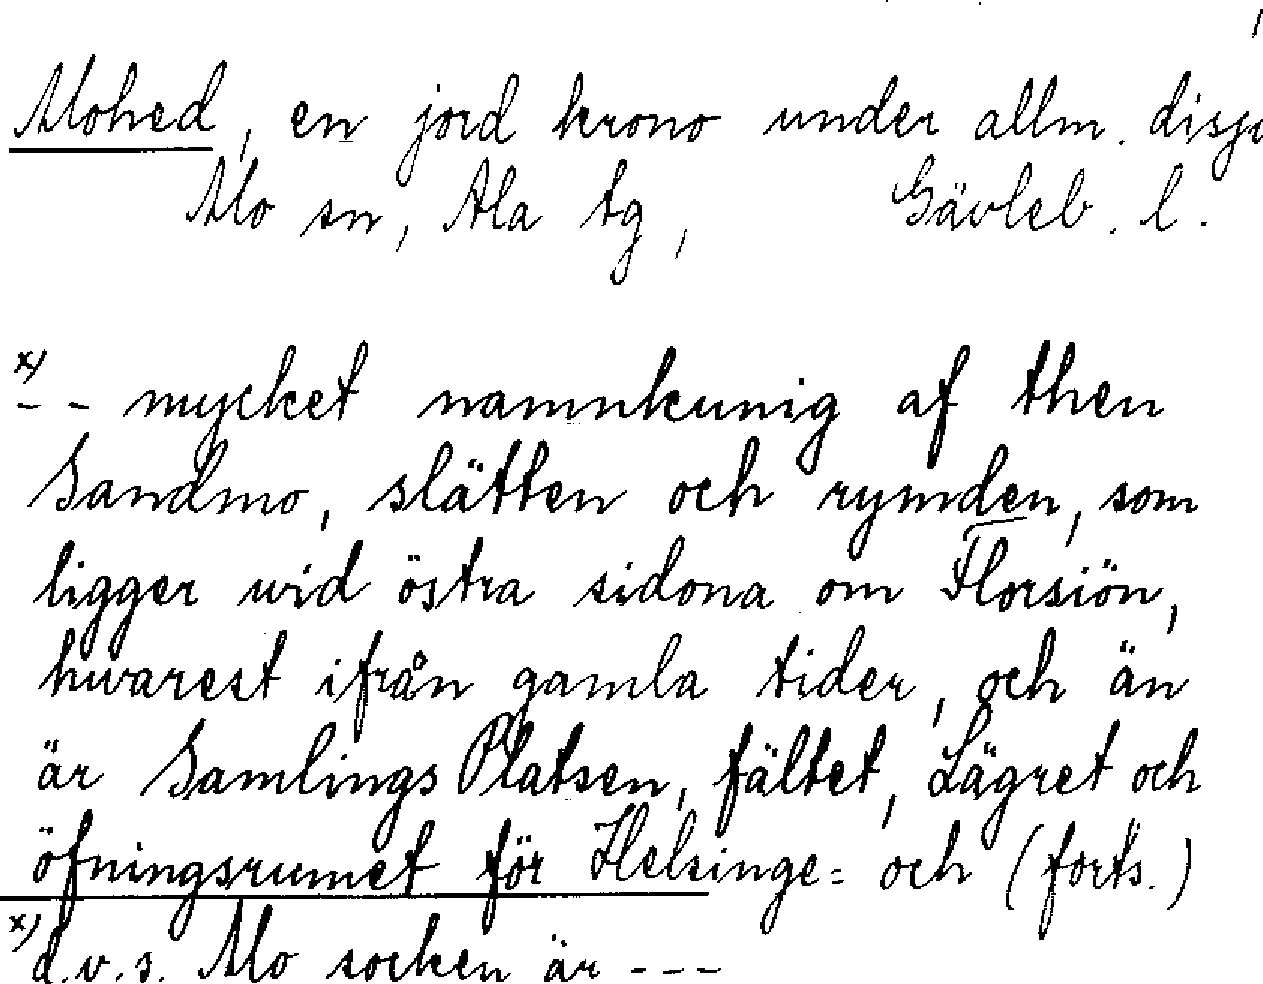 Mohed, en jord krono under allm. disp
Mo sn, Ala tg, Gävleb. l.
x)
- - mycket namnkunig af then
Sandmo, slätten och rymden, som
ligger wid östra sidona om Florsiön,
hwarest ifrån gamla tider, och än
är Samlings Platsen, fältet, Lägret och
öfningsrumet för Helsinge= och (forts.)
x)
d.v.s. Mo socken är - - -